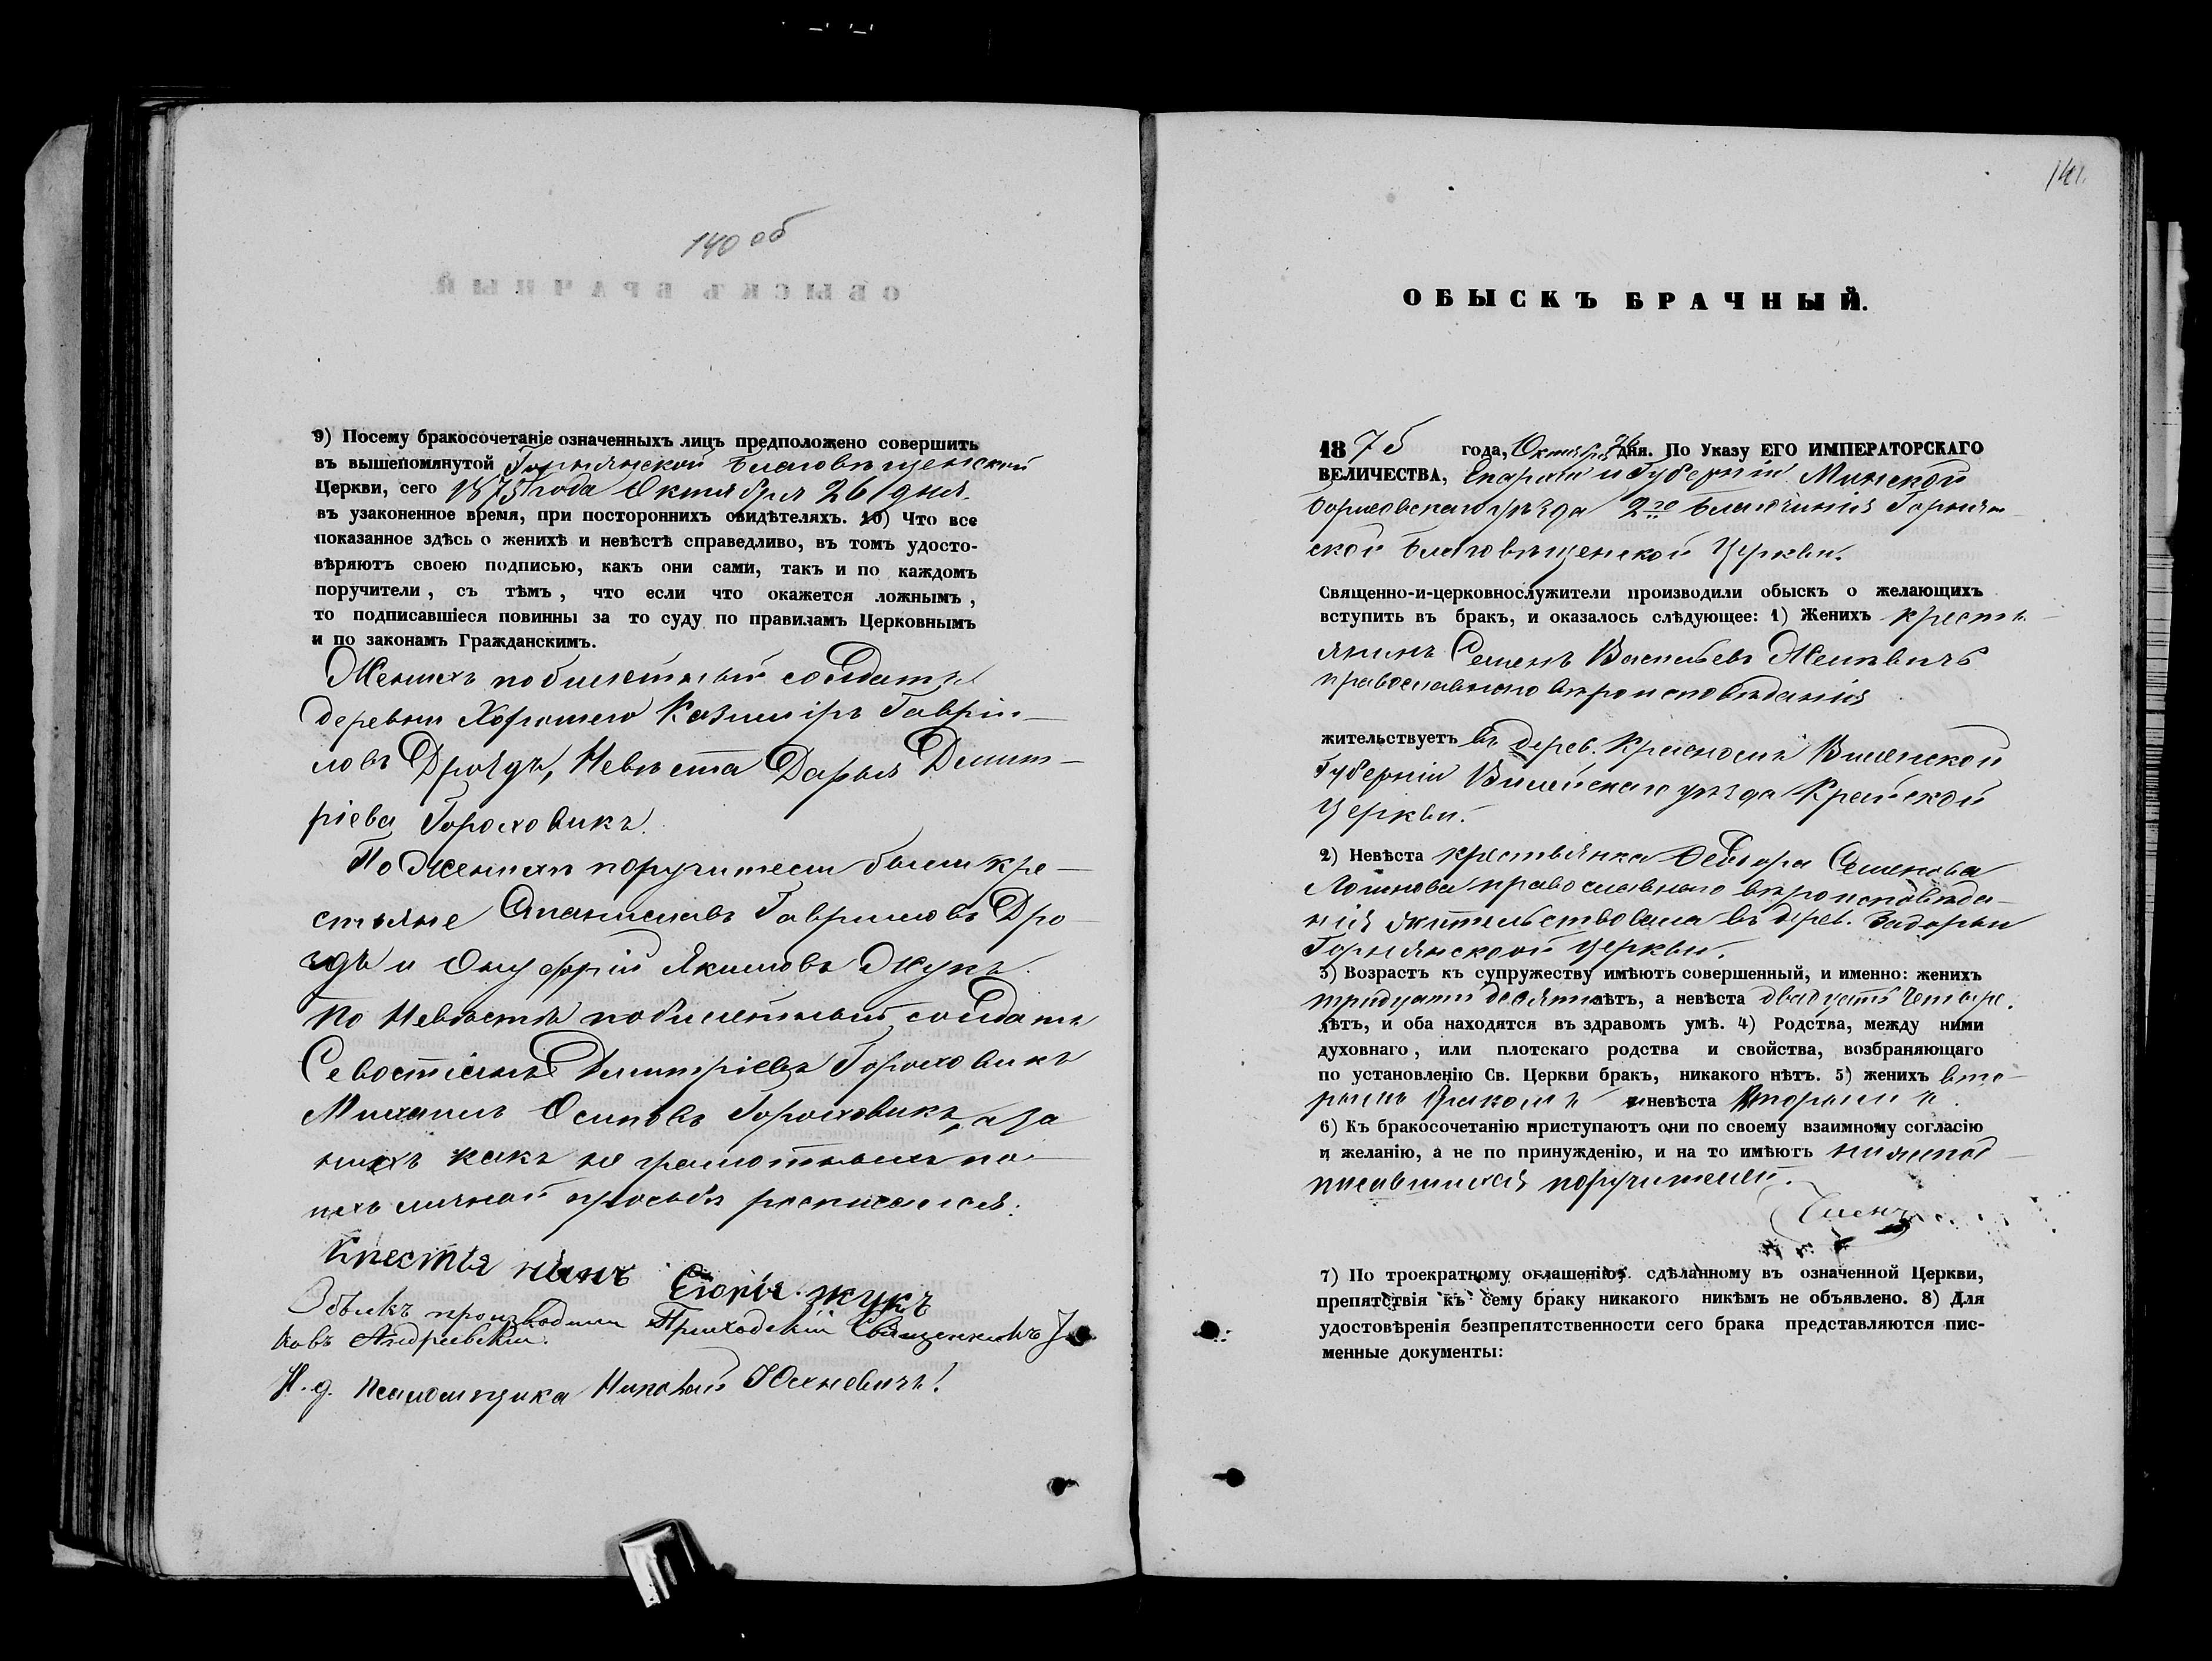 140 об
9) Посему бракосочетаніе означенныхъ лицъ предположено совершить
въ вышепомянутой Горнянской Благовѣщенской
Церкви, сего 1875 года Октября 26 дня.
въ узаконенное время, при постороннихъ свидѣтеляхъ. 10) Что все
показанное здѣсь о женихѣ и невѣстѣ справедливо, въ томъ удосто-
вѣряютъ своею подписью, какъ они сами, такъ и по каждомъ
поручители, съ тѣмъ, что если что окажется ложнымъ,
то подписавшіеся повинны за то суду по правиламъ Церковнымъ
и по законамъ Гражданскимъ.
Женихъ побилетный солдатъ
деревни Казиміръ Гаврі-
ловъ Дроздъ, Невѣста Дарья Димит-
ріева Гороховикъ.
По Женихѣ поручители были кре-
стьяне Станиславъ Гавриловъ Дро-
здъ и Онуфрій Якимовъ Жукъ.
По Невѣстѣ побилетный солдатъ
Севостіянъ Димитріевъ Гороховикъ
Михаилъ Осиповъ Гороховикъ, а за
нихъ какъ не грамотныхъ по
ихъ личной просьбѣ росписался:
Крестья нинъ Жукъ
Обыскъ производили Приходскій Священникъ
Андреевскій.
И. д. Псаломщика Николай Юхневичъ.
ОБЫСКЪ БРАЧНЫЙ.
1875 года, Октября 26 дня. По Указу ЕГО ИМПЕРАТОРСКАГО
ВЕЛИЧЕСТВА, Епархіи и Губерніи Минской
Борисовскаго уѣзда 2го Благочинія Горнян-
ской Благовѣщенской Церкви.
Священно-и-церковнослужители производили обыскъ о желающихъ
вступить въ бракъ, и оказалось слѣдующее: 1) Женихъ кресть-
янинъ Семенъ Васильевъ
православнаго вѣроисповѣданія
жительствуетъ въ дерев. Виленской
Губерніи Вилейскаго уѣзда Крайской
Церкви.
2) Невѣста крестьянка Ѳеодора Семенова
православнаго вѣроисповѣда-
нія жительствовала въ дерев. Задорьи
Горнянской Церкви.
3) Возрастъ къ супружеству имѣютъ совершенный, и именно: женихъ
лѣтъ, а невѣста двадцать четыре.
лѣтъ, и оба находятся въ здравомъ умѣ. 4) Родства, между ними
духовнаго, или плотскаго родства и свойства, возбраняющаго
по установленію Св. Церкви бракъ, никакого нѣтъ. 5) женихъ вто-
рымъ бракомъ и невѣста Вторымъ.
6) Къ бракосочетанію приступаютъ они по своему взаимному согласію
и желанію, а не по принужденію, и на то имѣютъ нижепод-
писавшихся поручителей.
7) По троекратному оглашенію, сдѣланному въ означенной Церкви,
препятствія къ сему браку никакого никѣмъ не объявлено. 8) Для
удостовѣренія безпрепятственности сего брака представляются пис-
менные документы: